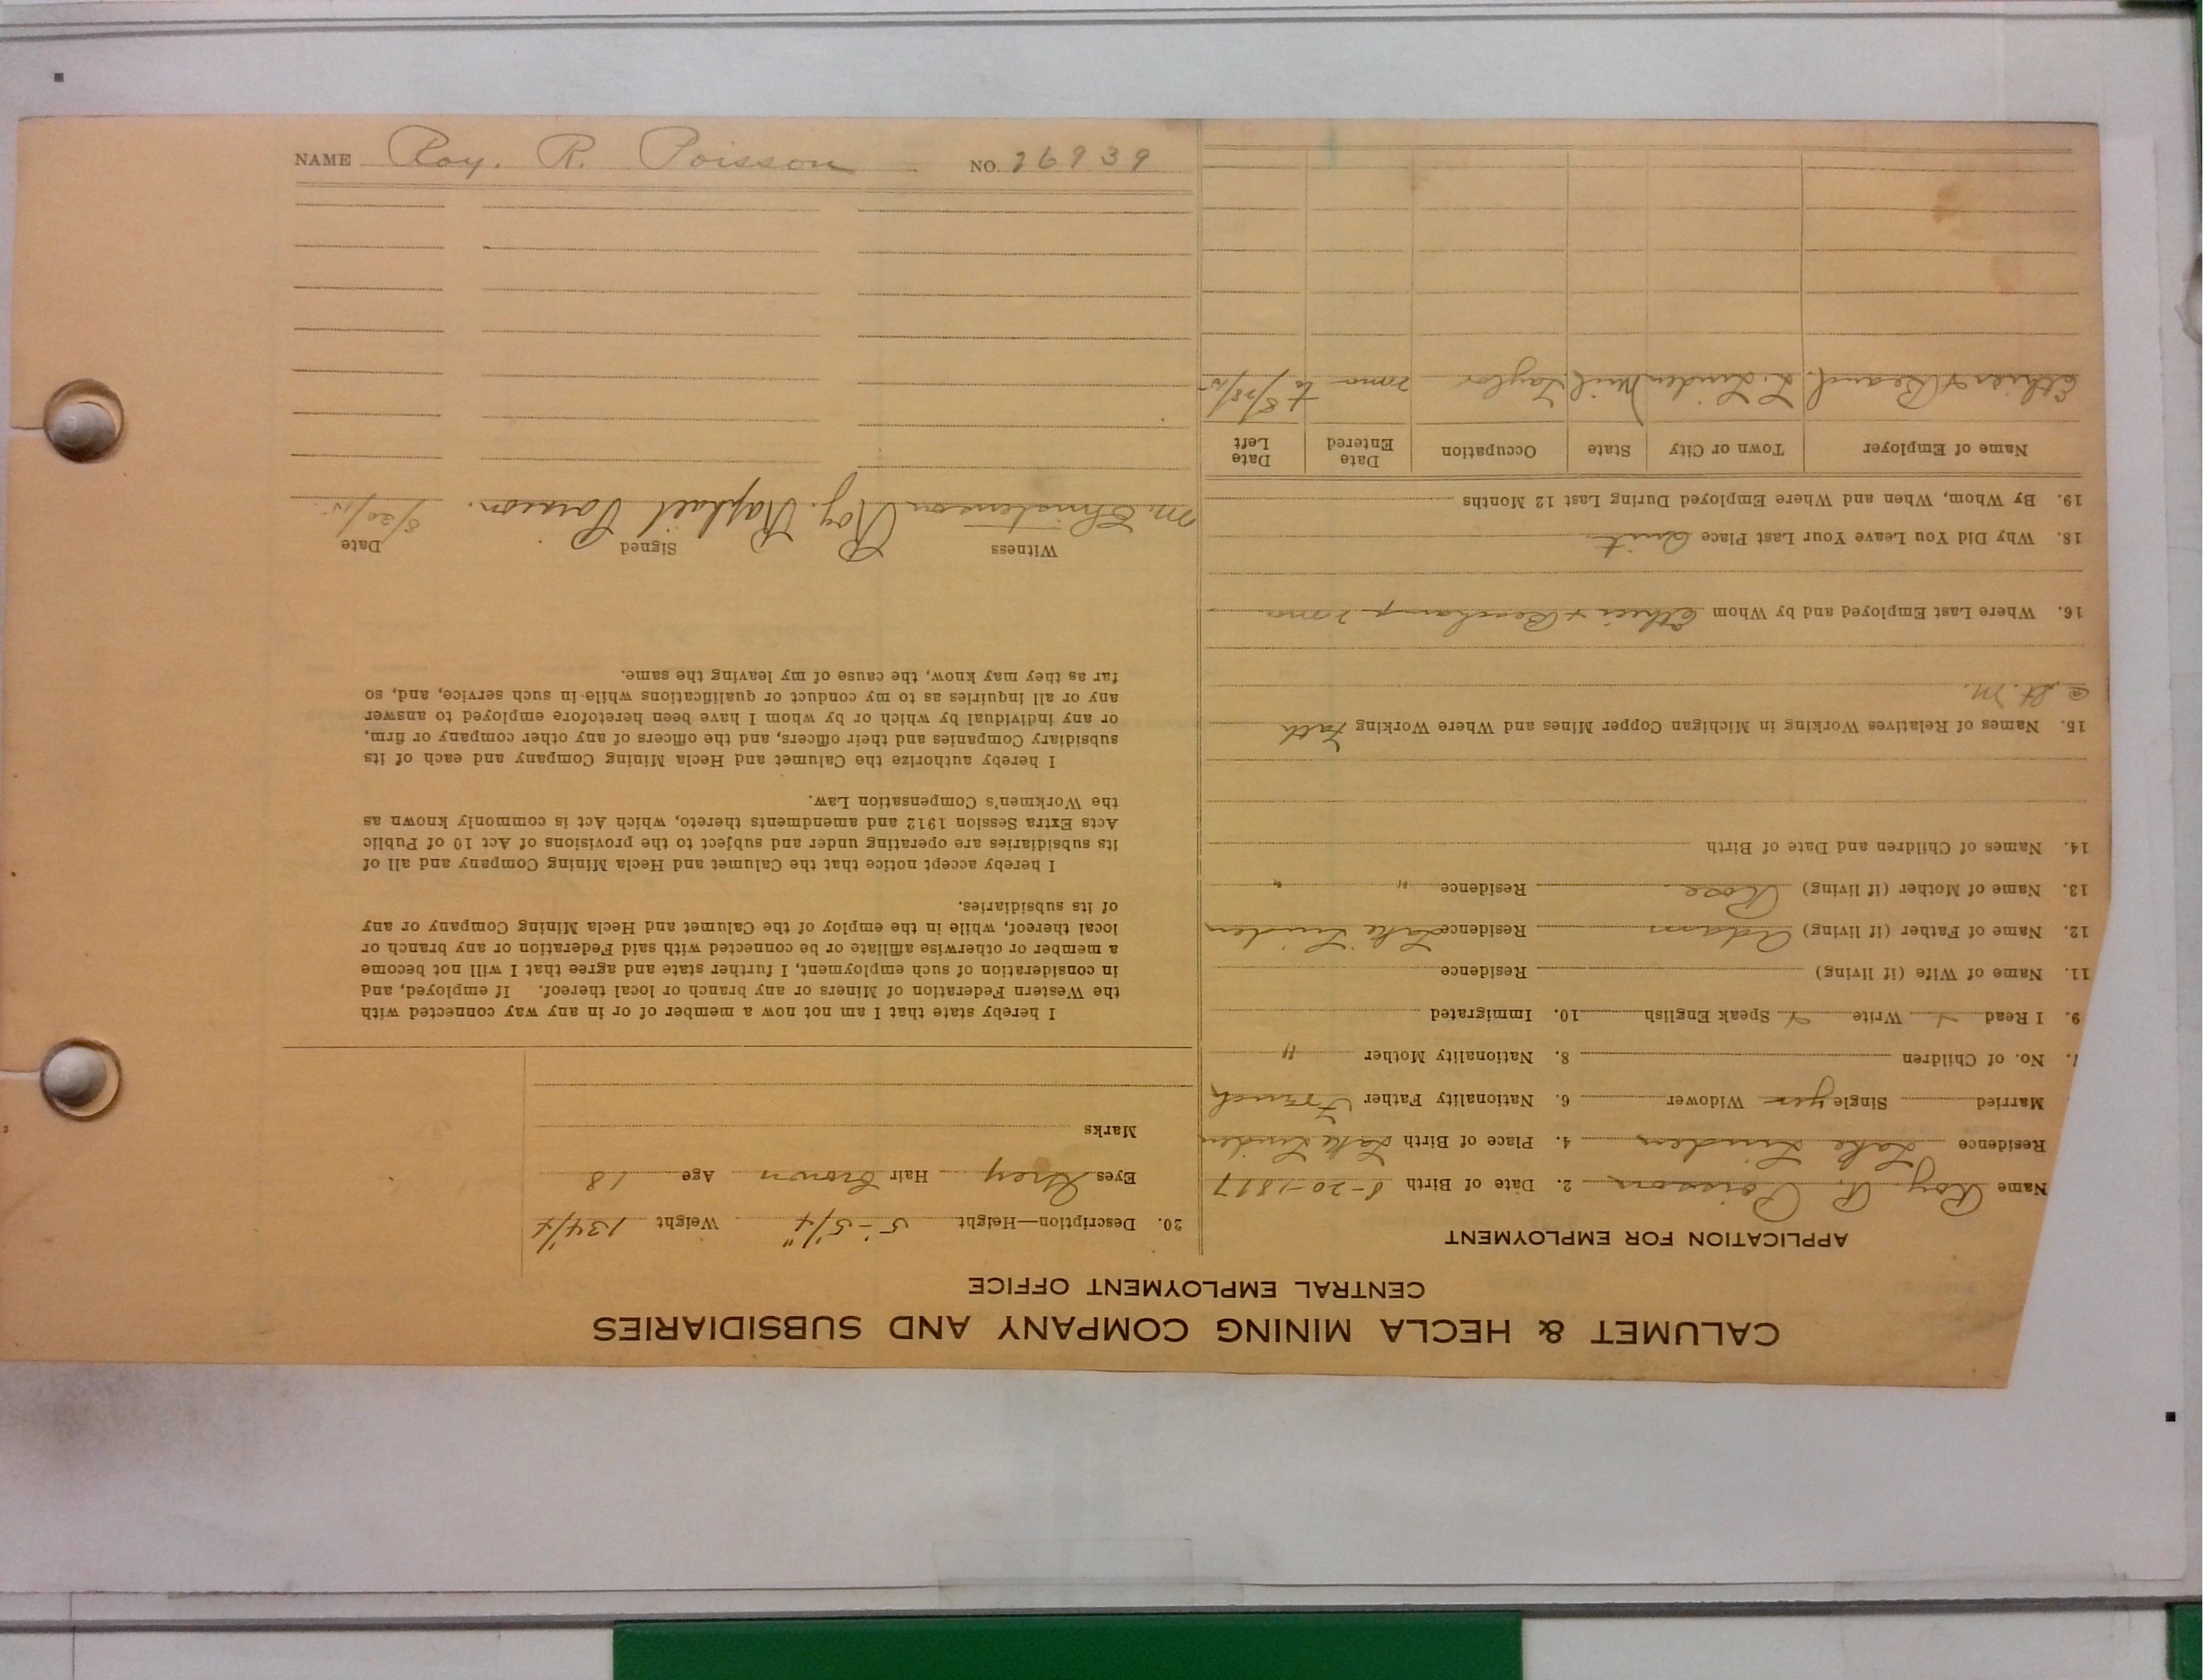 CALUMET & HECLA MINING COMPANY AND SUBSIDIARIES
CENTRAL EMPLOYMENT OFFICE
APPLICATION FOR EMPLOYMENT
Name Roy. R. Poisson 2. Date of Birth 8-20-1897
Residence Lake Linden 4. Place of Birth Lake Linden
Married Single yes Widower 6. Nationality Father French
7. No. of Children 8. Nationality Mother "
9. I Read Write Speak English 10. Immigrated
11. Name of Wife (if living) Residence
12. Name of Father (if living) Adam Residence Lake Linden
13. Name of Mother (if living) Rose Residence " "
14. Names of Children and Date of Birth
15. Names of Relatives Working in Michigan Copper Mines and Where Working Fath
@ St. M.
16. Where Last Employed and by Whom Ethier + Beauchamp 2 mo
18. Why Did You Leave Your Last Place Quit
19. By Whom, When and Where Employed During Last 12 Months
Name of Employer Town or City State Occupation Date Entered Date Left
Ethier & Beauch. L. Linden Mich Taylor 2 mo to 8/28/15
20. Description—Height 5'-5 1/4" Weight 134 1/4
Eyes Grey Hair Brown Age 18
Marks
I hereby state that I am not now a member of or in any way connected with
the Western Federation of Miners or any branch or local thereof. If employed, and
in consideration of such employment, I further state and agree that I will not become
a member or otherwise affiliate or be connected with said Federation or any branch or
local thereof, while in the employ of the Calumet and Hecla Mining Company or any
of its subsidiaries.
I hereby accept notice that the Calumet and Hecla Mining Company and all of
its subsidiaries are operating under and subject to the provisions of Act 10 of Public
Acts Extra Session 1912 and amendments thereto, which Act is commonly known as
the Workmen's Compensation Law.
I hereby authorize the Calumet and Hecla Mining Company and each of its
subsidiary Companies and their officers, and the officers of any other company or firm,
or any individual by which or by whom I have been heretofore employed to answer
any or all inquiries as to my conduct or qualifications while in such service, and, so
far as they may know, the cause of my leaving the same.
Witness Signed Date
M. Christenson Roy. Raphael Poisson. 8/30/15
NAME Roy. R. Poisson NO. 26939